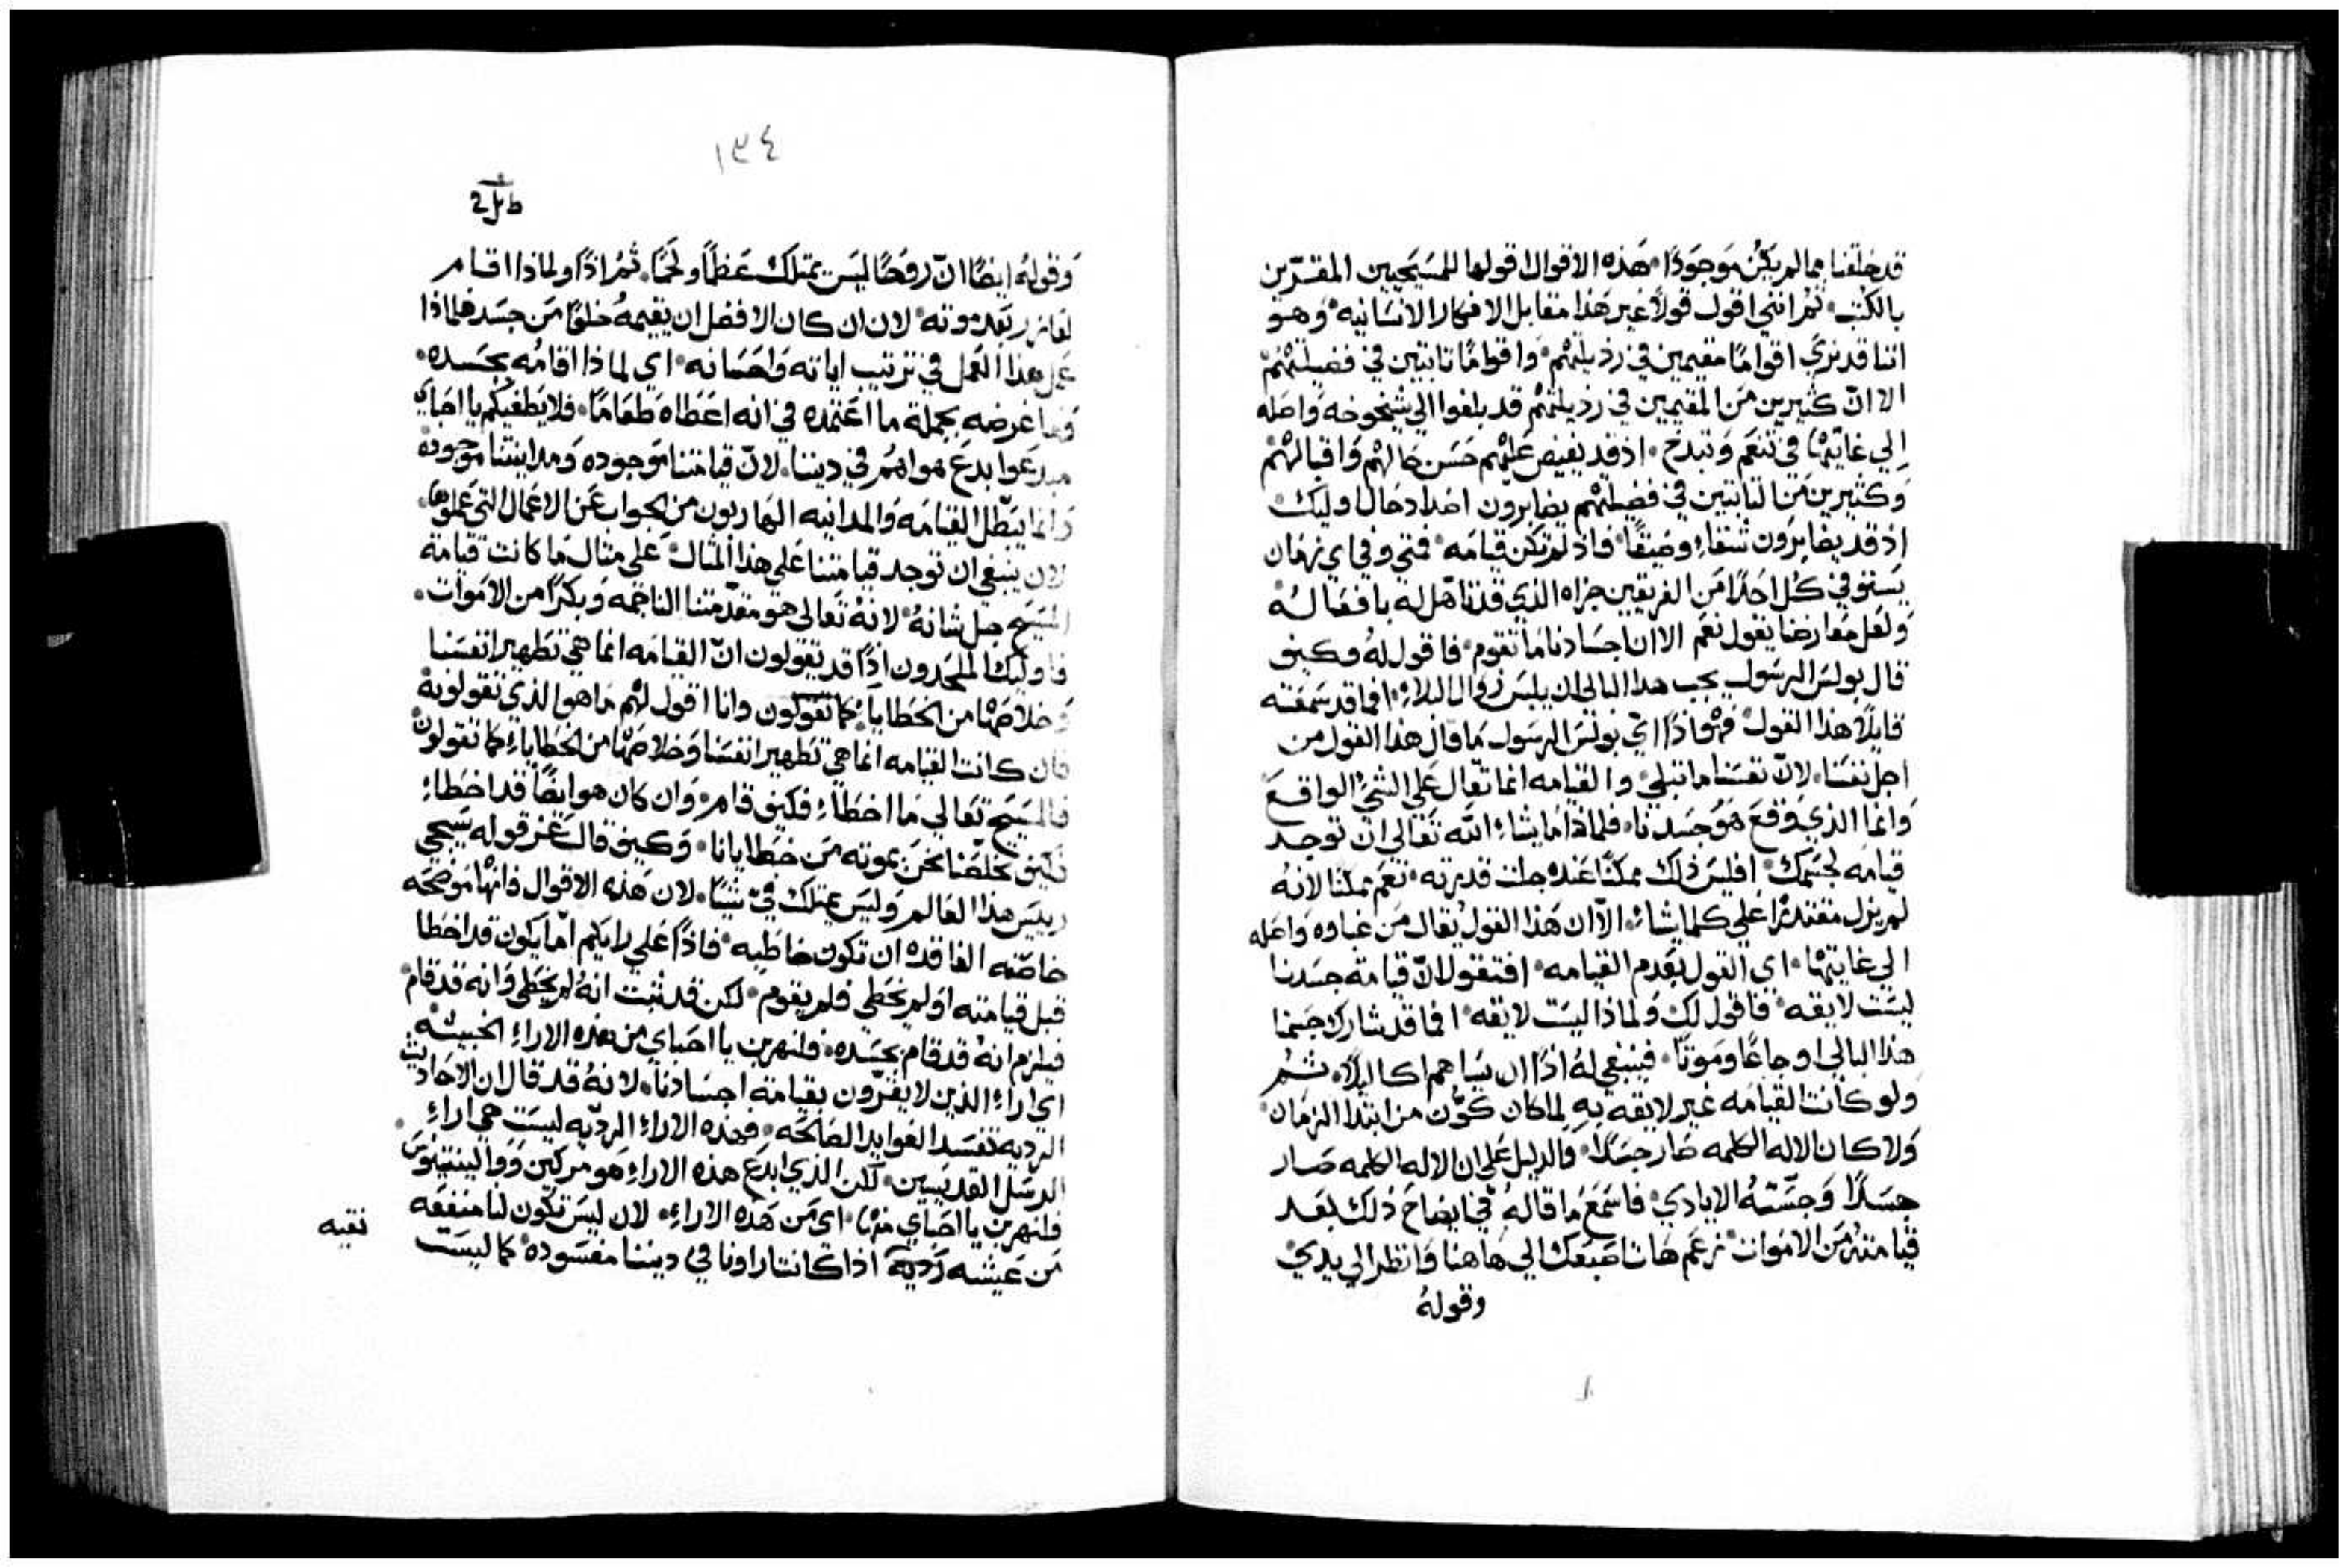 قد خلقنا مما لم يكن موجودًا. هذه الاقوال اقولها للمسيحيين المقسّرين
بالكتب. ثم انني اقول قولًا غير هذا مقابل الافكار الانسانيه. وهو
اننا قد نري اقوامًا مقيمين في رذيلتهم. واقوامًا تابتين في فضيلتهم
الا انّ كثيرين من المقيمين في رذيلتهم قد بلغوا الي شيخوخه واصله
الي غايتها في تنعم وتبدخ. اذ قد يفيض عليهم حسن حالهم واقبالهم
وكثيرين من التابتين في فضيلتهم يصابرون اضداد حال اوليك
اذ قد يصابرون شقاءً وضيقًا. فاذ لم تكن قيامه. فمتي وفي اي زمان
يستوفي كل احدًا من الفريقين جزاه الذي قد تاهل له بافعاله
ولعل معارضًا يقول نعم الا ان اجسادنا ما تقوم. فاقول له وكيف
قال بولس الرسول يجب هذا البالي ان يلبس زوال البلاء. افما قد سمعته
قايلًا هذا القول. فهو اذًا اي بولس الرسول ما قال هذا القول من
اجل نفسنا. لانّ نفسنا ما تبلي. والقيامه انما تقال علي الشي الواقع
وانما الذي وقع هو جسدنا. فلماذا ما يشاء الله تعالي ان توجد
قيامه لجسمك. افليس ذلك ممكنًا عنده جلت قدرته. نعم ممكنًا لانه
لم يزل مقتدرًا علي كلما يشاء. الا ان هذا القول يقال من غباوه واصله
الي غايتها. اي القول بعدم القيامه. افتقول لانّ قيامة جسدنا
ليست لايقه. فاقول لك ولماذا ليست لايقه. افما قد شارك جسمنا
هذا البالي اوجاعًا وموتًا. فينبغي له اذًا ان يساهم اكاليلًا. ثم
ولو كانت القيامه غير لايقه به لما كان كوّن من ابتدا الزمان
ولا كان الاله الكلمه صار جسدًا. والدليل علي ان الاله الكلمه صار
جسدًا وجسّته الايادي. فاسمع ما قاله في ايضاح ذلك بعد
قيامته من الاموات. زعم هات اصبعك الي هاهنا وانظر الي يدي
وقوله
١٣٤
وقوله ايضًا انّ روحًا ليس يمتلك عظمًا ولحمًا. ثم اذًا ولماذا اقام
لعازر بعد موته. لان ان كان الافضل ان يقيمه خلوًا من جسد فلماذا
عمل هذا العمل في ترتيب اياته واحسانه. اي لماذا اقامه بجسده.
وما غرضه بجملة ما اعتمده في انه اعطاه طعامًا. فلا يطغيكم يا احباي
مبدعوا بدع هواهم في ديننا. لانّ قيامتنا موجوده ومداينتنا موجوده
وانما يبطل القيامه والمداينه الهاربون من الجواب عن الاعمال التي عملوها.
لان ينبغي ان توجد قيامتنا علي هذا المثال علي مثال ما كانت قيامة
المسيح جل شانه. لانه تعالي هو مقدّمتنا الناجمه وبكرًا من الاموات.
فاوليك الملحدون اذًا قد يقولون انّ القيامه انما هي تطهير انفسنا
وخلاصها من الخطايا. كما تقولون وانا اقول لهم ما هو الذي تقولونه
فان كانت القيامه انما هي تطهير انفسنا وخلاصها من الخطاياء كما تقولون
فالمسيح تعالي ما اخطاء فكيف قام. وان كان هو ايضًا قد اخطاء
فكيف خلصنا نحن بموته من خطايانا. وكيف قال عن قوله يسيجي
رييس هذا العالم وليس يمتلك فيّ شيًا. لان هذه الاقوال فانها موضحه
خاصّته الفاقده ان تكون خاطيه. فاذًا علي رايكم امّا يكون قد اخطا
قبل قيامته او لم يخطي فلم يقوم. لكن قد ثبت انه لم يخطي وانه قد قام
فيلزم انه قد قام بجسده. فلنهرب يا احباي من هذه الاراء الخبيثه
اي اراء الذين لا يقرّون بقيامة اجسادنا. لانه قد قال ان الاحاديث
الرديه تفسد العوايد الصالحه. فهذه الاراء الرديّه ليست هي اراء
الرسل القديسين. لكن الذي ابدع هذه الاراء هو مركين ووالينتينوس
فلنهرب يا احباي منها. اي من هذه الاراء. لان ليس تكون لنا منفعه
من عيشه رديه اذا كانت اراونا في ديننا مفسوده. كما ليست
نقيه